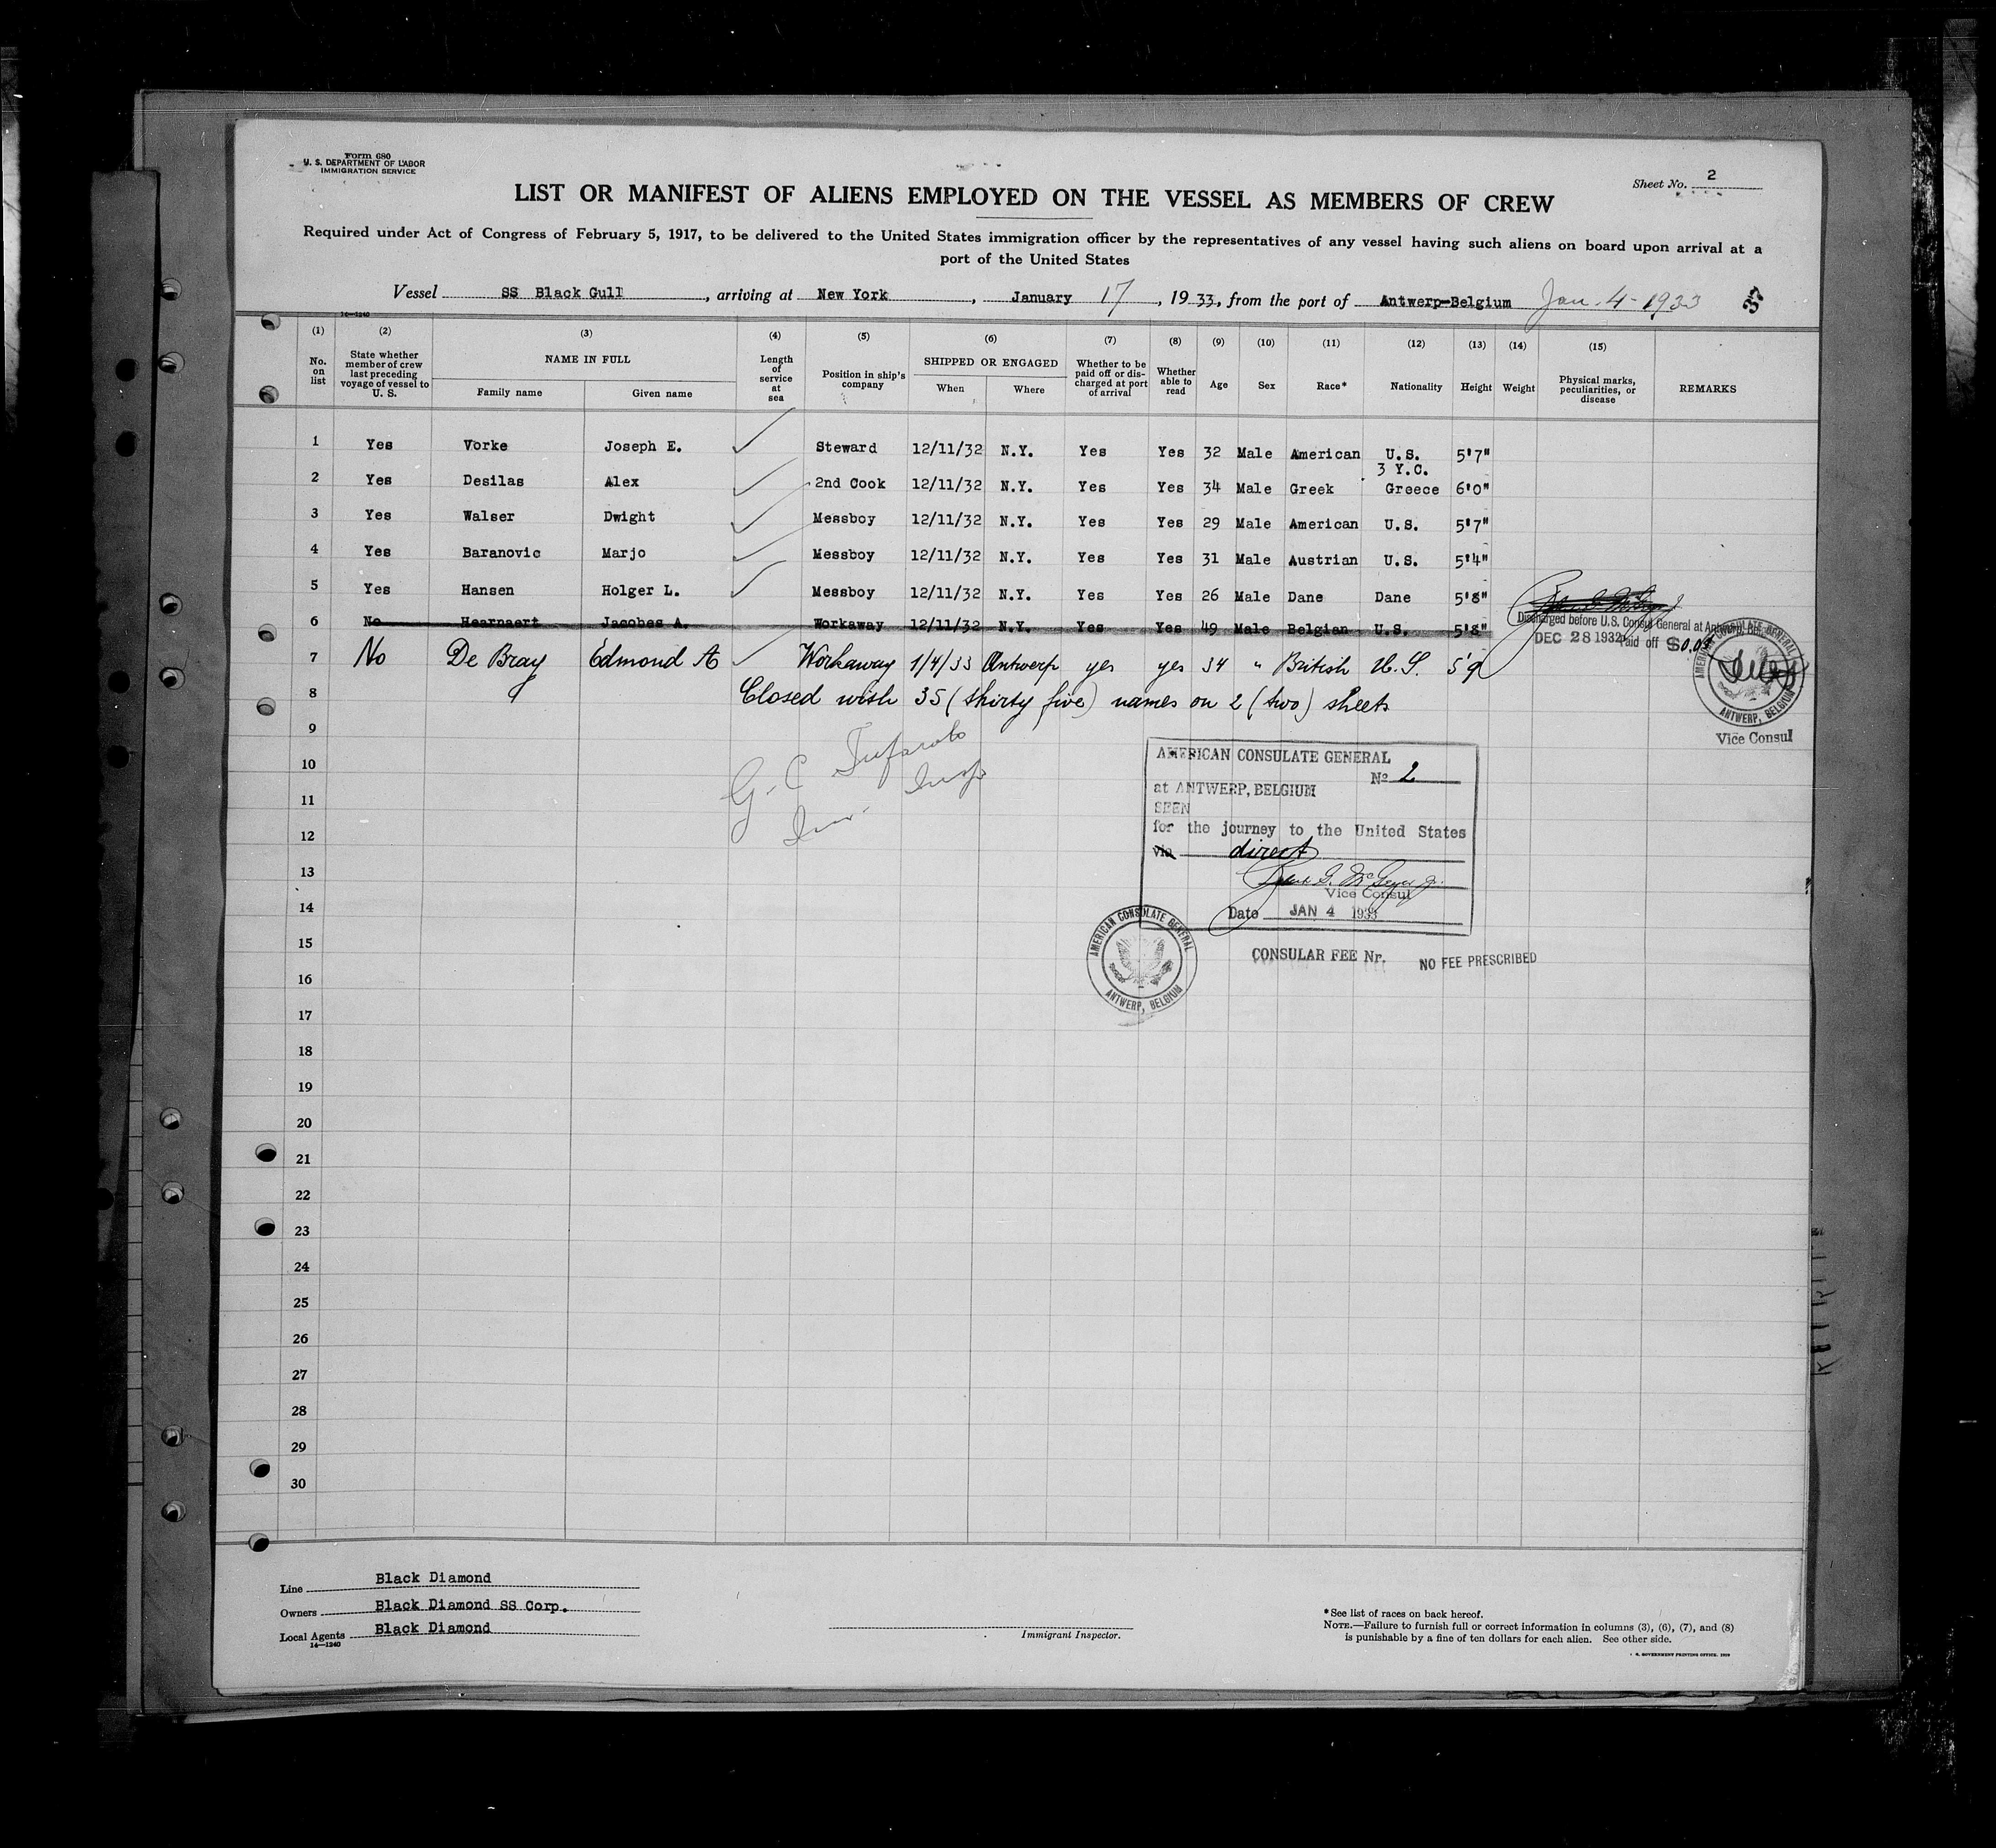 Form 680
U. S. DEPARTMENT OF LABOR
IMMIGRATION SERVICE
Sheet No. 2
LIST OR MANIFEST OF ALIENS EMPLOYED ON THE VESSEL AS MEMBERS OF CREW
Required under Act of Congress of February 5, 1917, to be delivered to the United States immigration officer by the representatives of any vessel having such aliens on board upon arrival at a
port of the United States
Vessel SS Black Gull, arriving at New York, January 17, 1933, from the port of Antwerp-Belgium Jan. 4 - 1933
37
14—1240
(1) (2) (3) (4) (5) (6) (7) (8) (9) (10) (11) (12) (13) (14) (15)
No. on list
State whether member of crew last preceding voyage of vessel to U. S.
NAME IN FULL
Family name
Given name
Length of service at sea
Position in ship's company
SHIPPED OR ENGAGED
When
Where
Whether to be paid off or discharged at port of arrival
Whether able to read
Age
Sex
Race*
Nationality
Height
Weight
Physical marks, peculiarities, or disease
REMARKS
1 Yes Vorke Joseph E. Steward 12/11/32 N.Y. Yes Yes 32 Male American U.S. 5'7"
3 Y.C.
2 Yes Desilas Alex 2nd Cook 12/11/32 N.Y. Yes Yes 34 Male Greek Greece 6'0"
3 Yes Walser Dwight Messboy 12/11/32 N.Y. Yes Yes 29 Male American U.S. 5'7"
4 Yes Baranovic Marjo Messboy 12/11/32 N.Y. Yes Yes 31 Male Austrian U.S. 5'4"
5 Yes Hansen Holger L. Messboy 12/11/32 N.Y. Yes Yes 26 Male Dane Dane 5'8"
6 No Hearnaert Jacobes A. Workaway 12/11/32 N.Y. Yes Yes 49 Male Belgian U.S. 5'8"
Discharged before U.S. Consul General at Antwerp
DEC 28 1932 Paid off $0.0
AMERICAN CONSULATE GENERAL
ANTWERP, BELGIUM
Vice Consul
7 No De Bray Edmond A Workaway 1/4/33 Antwerp yes yes 34 " British U. S. 5'9
8 Closed with 35 (thirty five) names on 2 (two) sheets
9
10
11
12
13
14
15
16
17
18
19
20
21
22
23
24
25
26
27
28
29
30
AMERICAN CONSULATE GENERAL
No 2
at ANTWERP, BELGIUM
SEEN
for the journey to the United States
via direct
Vice Consul
Date JAN 4 1933
AMERICAN CONSULATE GENERAL
ANTWERP, BELGIUM
CONSULAR FEE Nr. NO FEE PRESCRIBED
Line Black Diamond
Owners Black Diamond SS Corp.
Local Agents Black Diamond
14—1240
Immigrant Inspector.
*See list of races on back hereof.
NOTE.—Failure to furnish full or correct information in columns (3), (6), (7), and (8)
is punishable by a fine of ten dollars for each alien. See other side.
GOVERNMENT PRINTING OFFICE